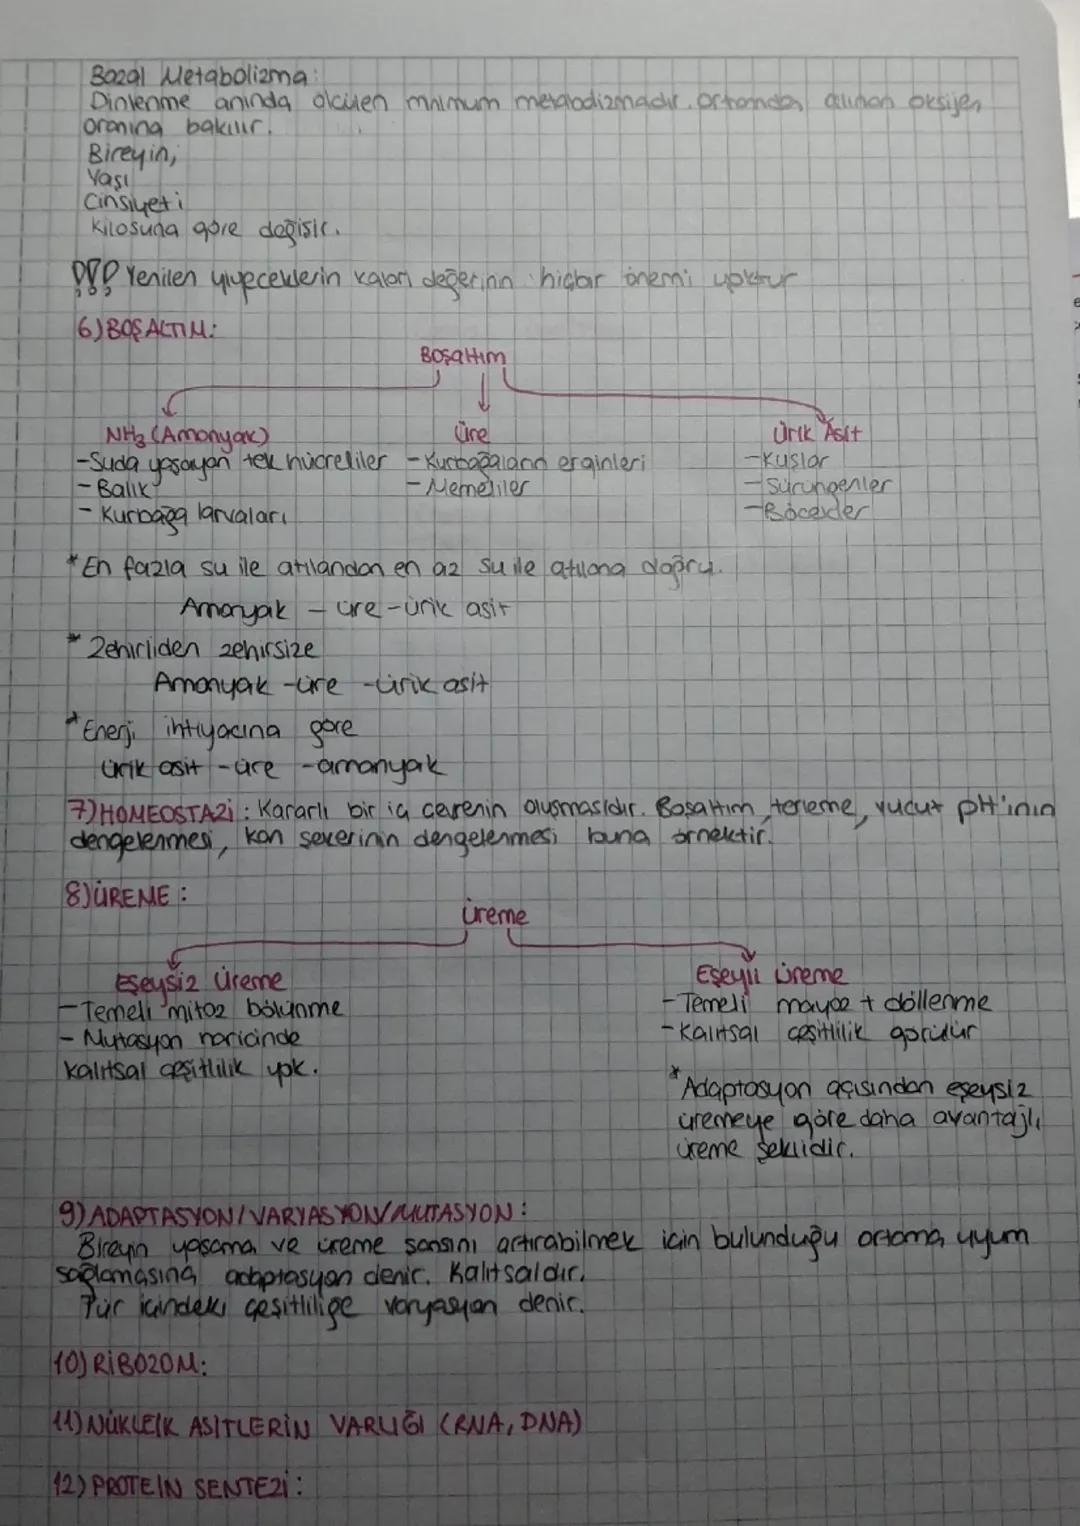 Bazal Metabolizma:
Dinlenme anında ölçülen minimum metabolizmadır. Ortamdan alınan oksijen
oranına bakılır.
Bireyin,
Yaşı
Cinsiyeti
Kilosuna göre değişir.
!!! Yenilen yiyeceklerin kalori değerinin hiçbir önemi yoktur
6) BOŞALTIM:
Boşaltım
NH3 (Amonyak) Üre Ürik Asit
-Suda yaşayan tek hücreliler -Kurbağaların erginleri -Kuşlar
-Balık -Memeliler -Sürüngenler
- Kurbağa larvaları -Böcekler
*En fazla su ile atılandan en az su ile atılana doğru.
Amonyak - üre - ürik asit
*Zehirliden zehirsize
Amonyak - üre - ürik asit
*Enerji ihtiyacına göre
ürik asit - üre - amonyak
7) HOMEOSTAZİ: Kararlı bir iç çevrenin oluşmasıdır. Boşaltım, terleme, vücut pH'ının
dengelenmesi, kan şekerinin dengelenmesi buna örnektir.
8) ÜREME:
Üreme
Eşeysiz Üreme Eşeyli Üreme
-Temeli mitoz bölünme -Temeli mayoz + döllenme
- Mutasyon haricinde -Kalıtsal çeşitlilik görülür
kalıtsal çeşitlilik yok.
*Adaptasyon açısından eşeysiz
üremeye göre daha avantajlı
üreme şeklidir.
9) ADAPTASYON/VARYASYON/MUTASYON:
Bireyin yaşama ve üreme şansını artırabilmek için bulunduğu ortama uyum
sağlamasına adaptasyon denir. Kalıtsaldır.
Tür içindeki çeşitliliğe varyasyon denir.
10) RİBOZOM:
11) NÜKLEİK ASİTLERİN VARLIĞI (RNA, DNA)
12) PROTEIN SENTEZİ: